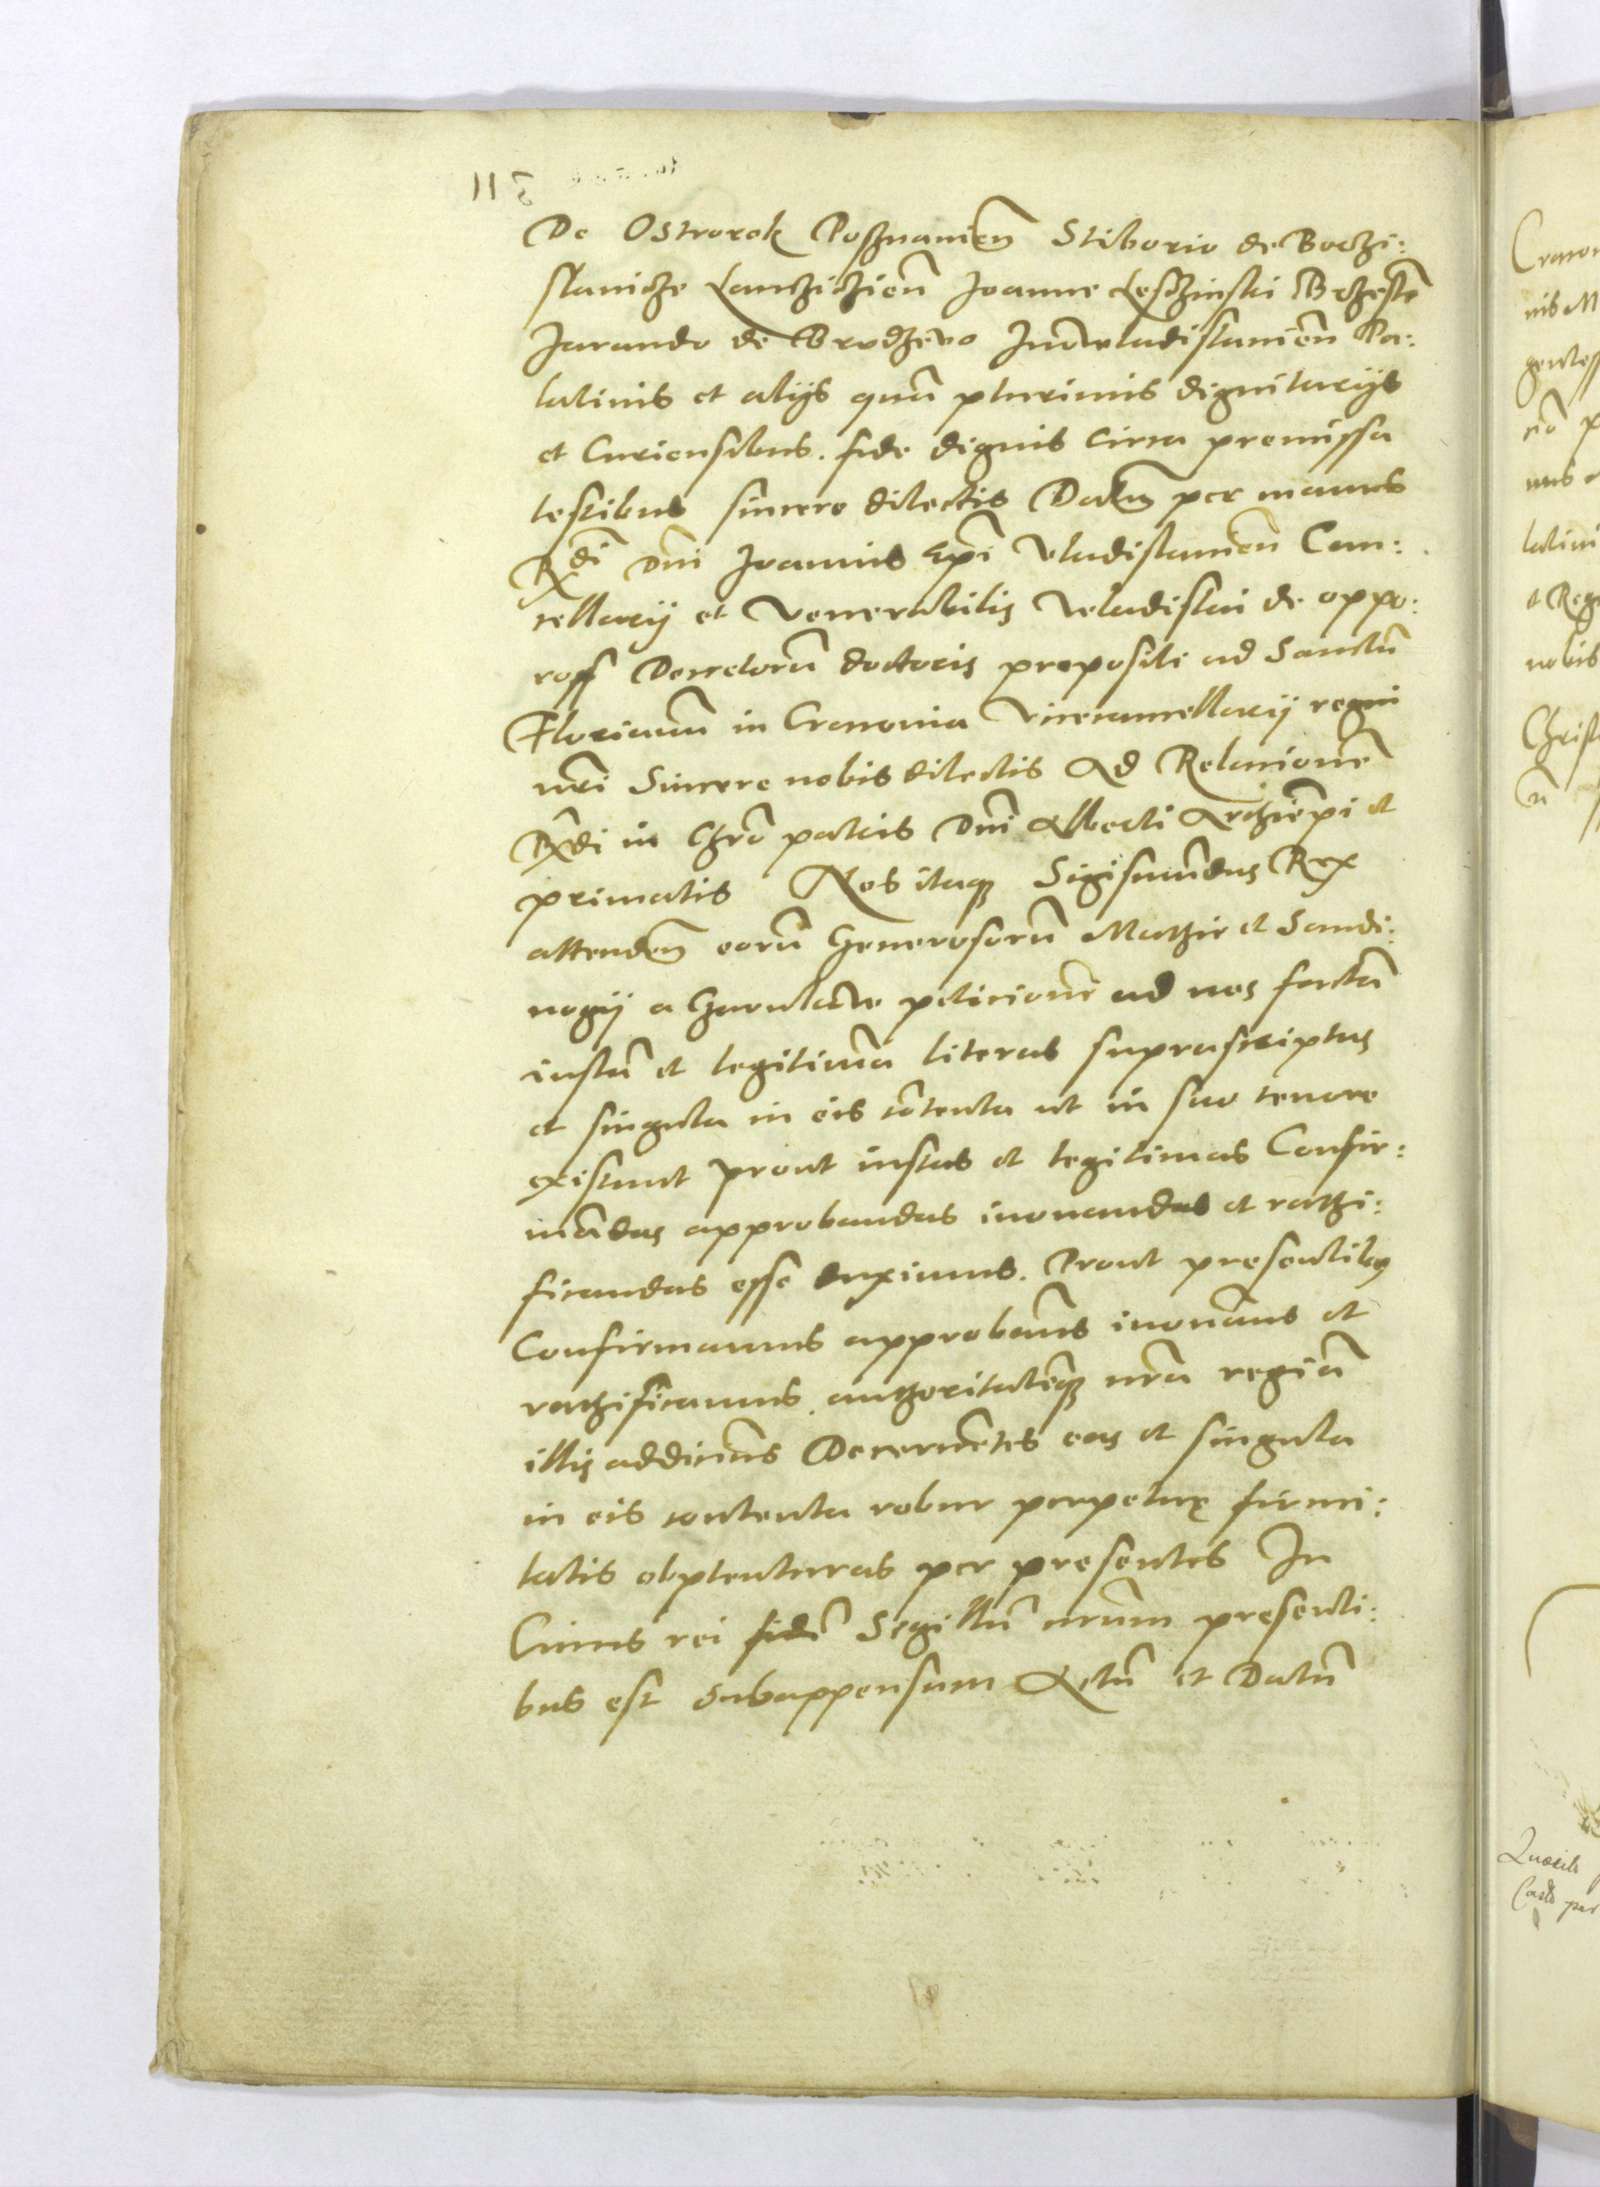 De Ostrorok Posznanien̄ Stiborio de Borzi:
slauicze Lanczicien̄ Joanne Lesczinski Brzestn̄
Jarando de Brudzewo Juniwladislauien̄ Pa:
latinis et alijs quā plurimis dignitarijs
et Curiensibus. fide dignis circa premissa
testibus sincere dilectis Datum per manus
Rndi Dn̄i Joannis Ep̄i Vladislauien̄ Can:
cellarij et venerabilis Wladislai de oppo:
roff Decretorū doctoris prepositi ad Sanctū
Florianū in Cracouia vicecancellarij regni
nr̄i Sincere nobis dilectis Ad Relacionē
Rn̄di in Chr̄o patris Dn̄i Alberti Archiep̄i et
primatis Nos itaq3 Sigismūdus Rex
attenden̄ eorū Generosorū Mathie et Sandi:
nogij a Gzarnkow peticionē ad nos factā
iustā et legitimā literas suprascriptas
et singula in eis cōtenta ut in suo tenore
existunt prout iustas et legitimas Confir:
mādas approbandas inouandas et rathi:
ficandas esse duximus. Prout presentibus
Confirmamus approbamus inouamus et
rathificamus. authoritatemq3 nr̄am regiā
illis addicimus Decernētes eas et singula
in eis contenta robur perpetuę firmi:
tatis obptenturas per presentes In
Cuius rei fidē Sigillū nr̄um presenti:
bus est Subappensum Actū et Datū